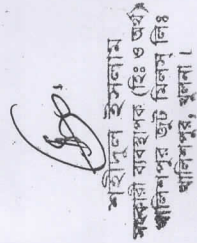 শহীদুল ইসলাম
সহকারী ব্যবস্থাপক (হিঃ ও অর্থ)
খালিশপুর জুট মিলস্ লিঃ
খালিশপুর, খুলনা।